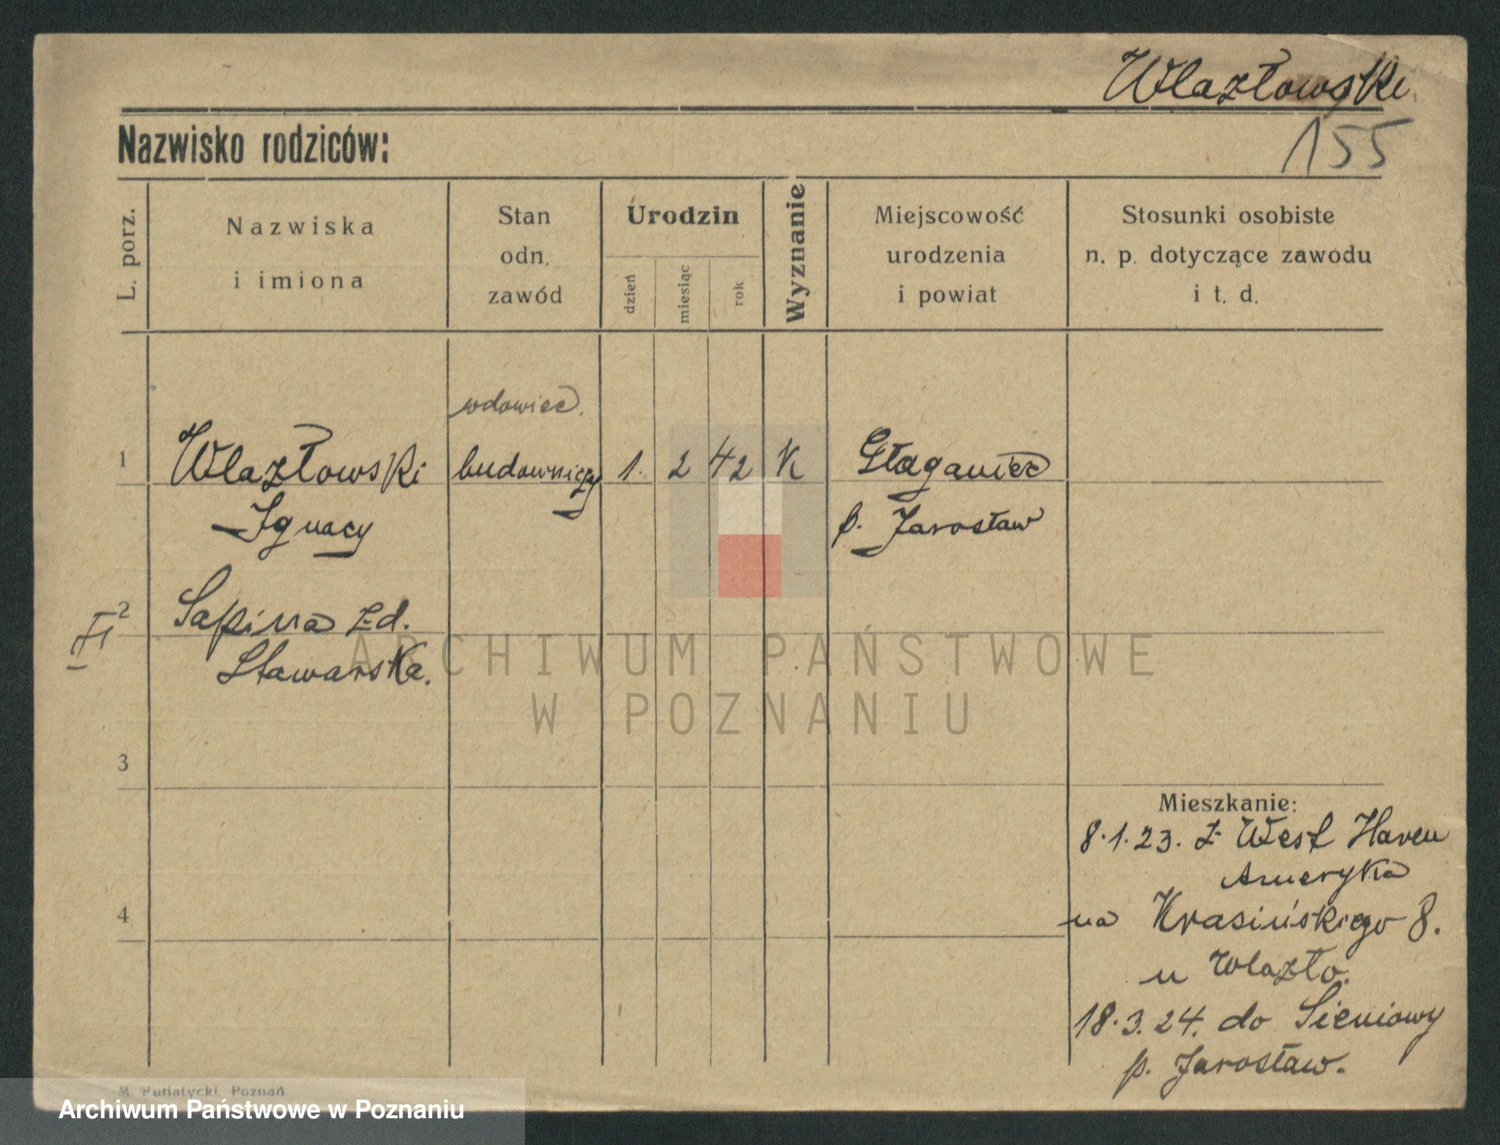 Wlazłowski
155
Nazwisko rodziców:
L. porz.
Nazwiska
i imiona
Stan
odn.
zawód
Urodzin
dzień
miesiąc
rok
Wyznanie
Miejscowość
urodzenia
i powiat
Stosunki osobiste
n. p. dotyczące zawodu
i t. d.
wdowiec.
1 Wlazłowski budowniczy 1. 2 42 K
Ignacy p. Jarosław
2 Sapina zd.
II
Stawarska.
ARCHIWUM PAŃSTWOWE
W POZNANIU
3
Mieszkanie:
8.1.23. z West Haven
Ameryka
4
na Krasińskiego 8.
u Wlazło.
18.3.24. do Sieniawy
p. Jarosław.
M. Putiatycki, Poznań
Archiwum Państwowe w Poznaniu